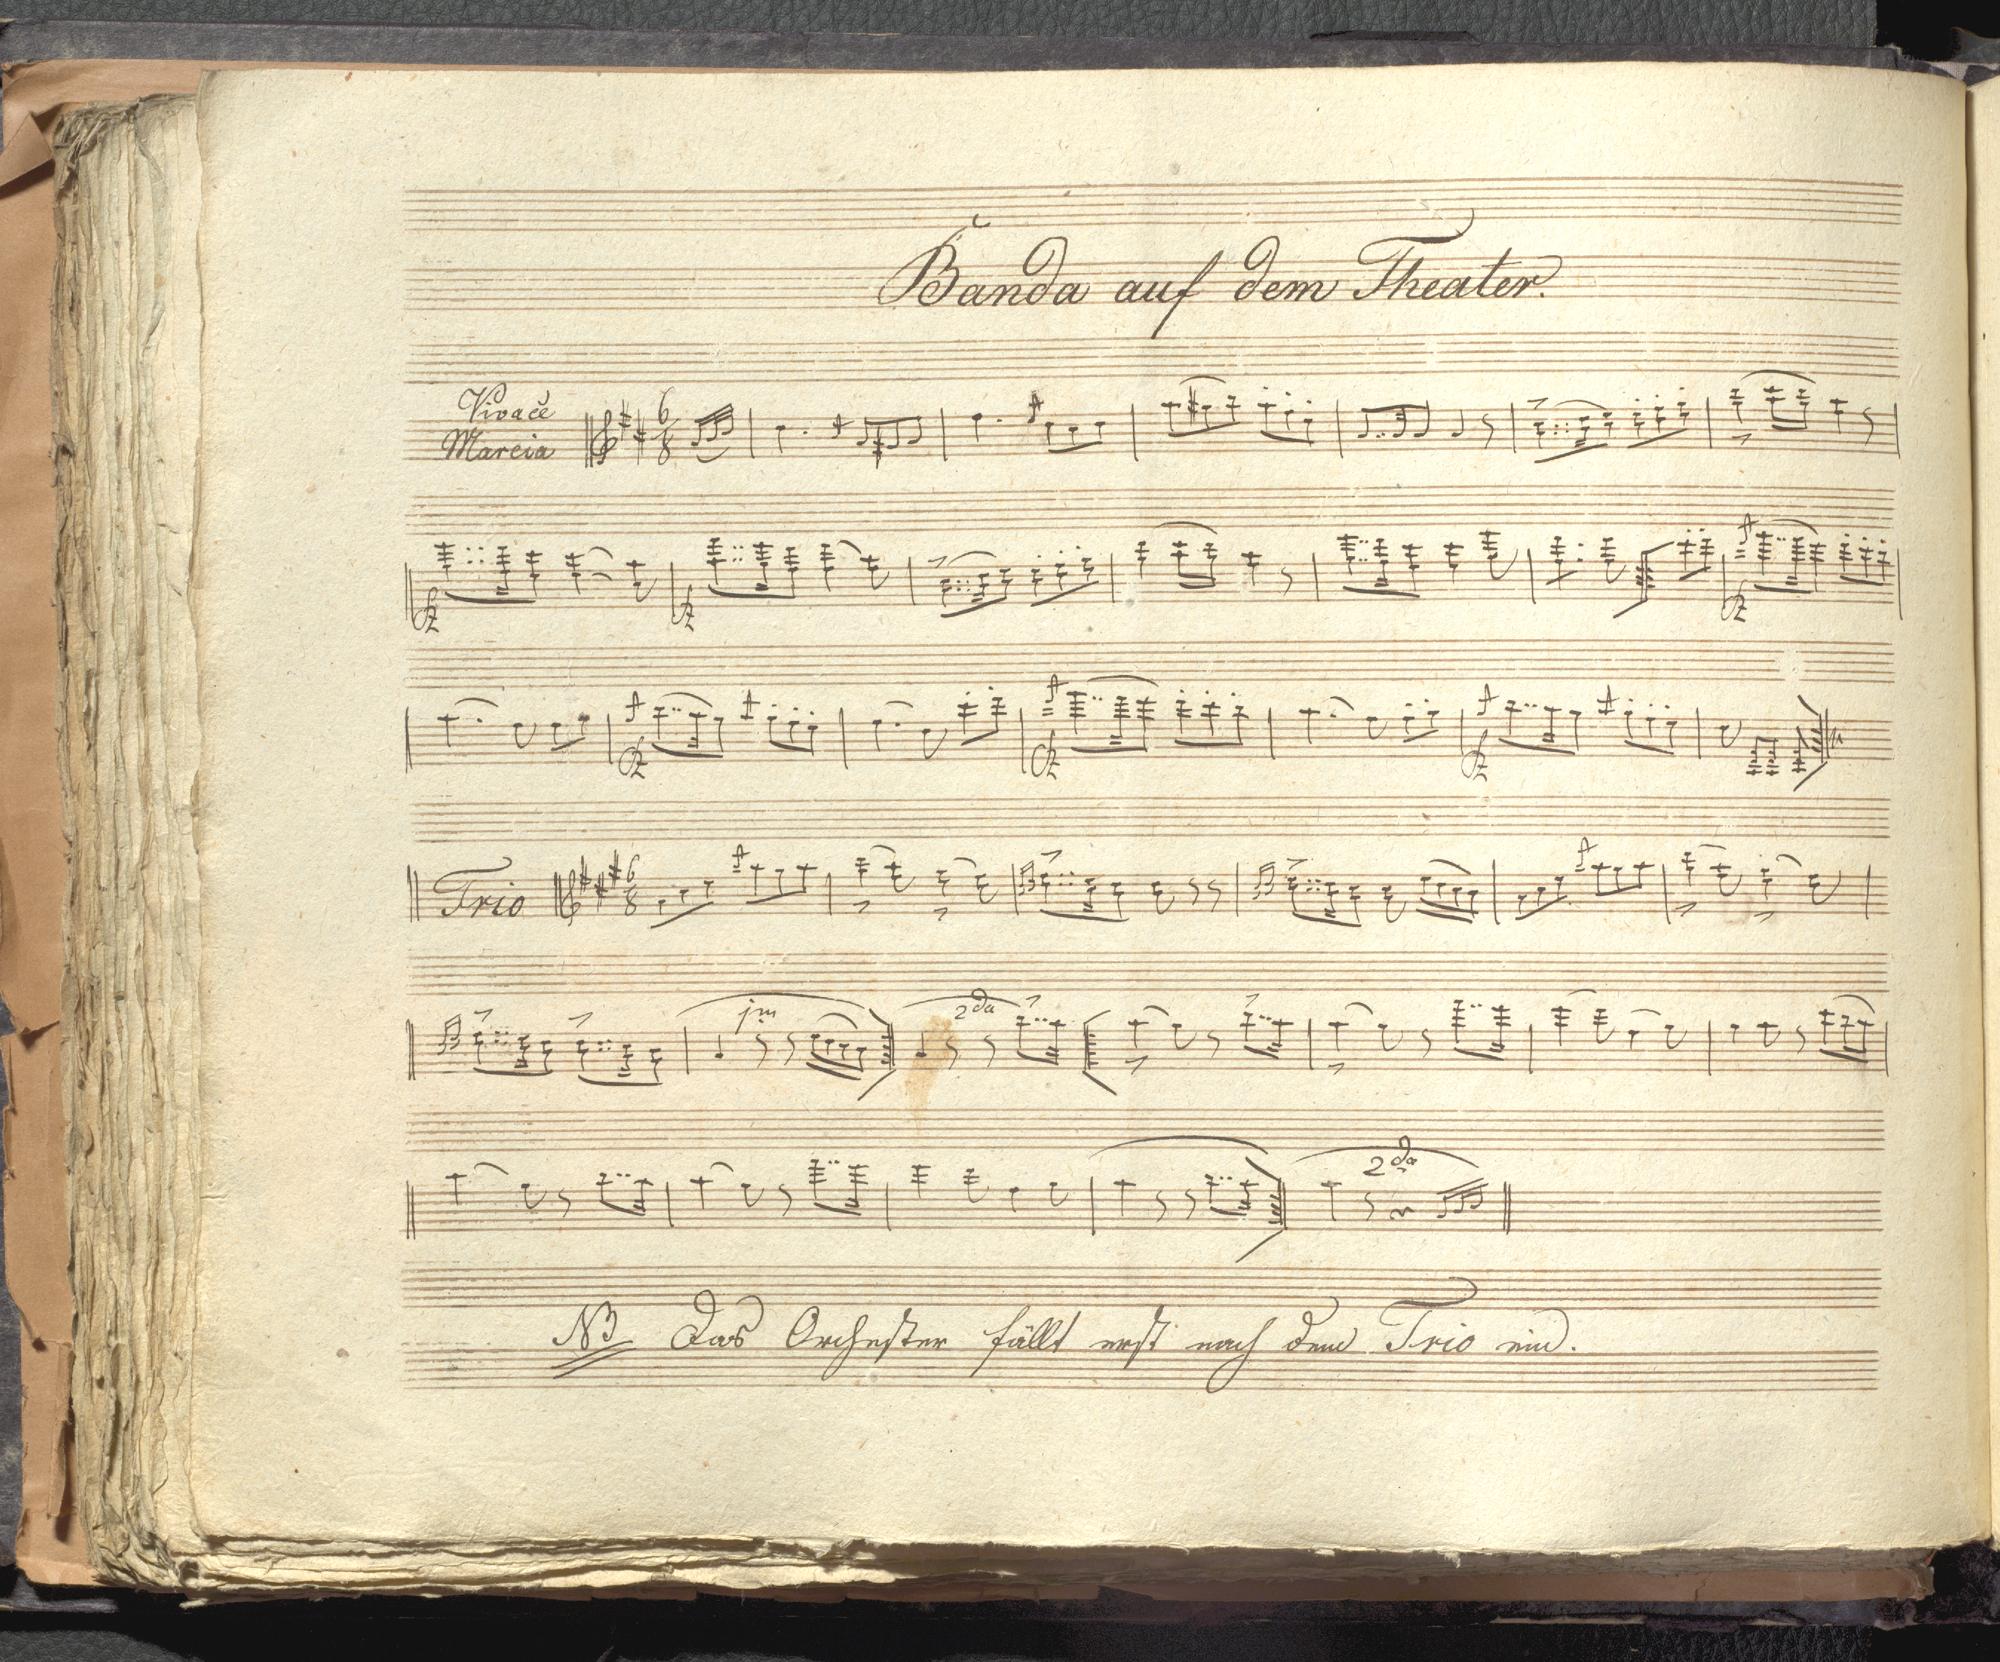 Banda auf dem Theater.
Vivace
Marcia
6
8
Trio
6
8
1m
2da
2da
NB Das Orchester fällt erst nach dem Trio ein.